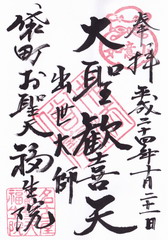 奉拝
平成二十四年十月二十日
大聖歓喜天
出世大師
袋町お聖天
福生院